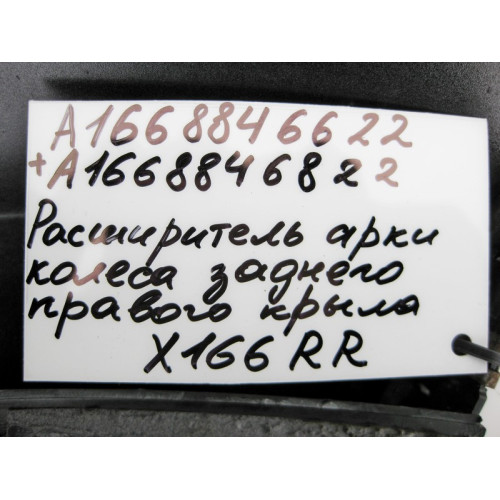 A1668846622
+A1668846822
Расширитель арки
колеса заднего
правого крыла
X166 RR